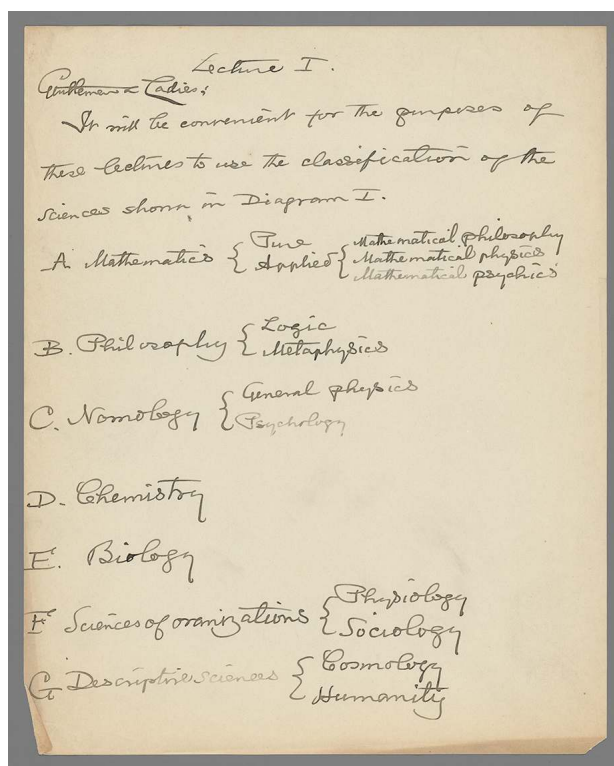 Lecture I.
Gentlemen & Ladies:
It will be convenient for the purposes of
these lectures to use the classification of the
sciences shown in Diagram I.
A. Mathematics { Pure
Applied { Mathematical philosophy
Mathematical physics
Mathematical psychics
B. Philosophy { Logic
Metaphysics
C. Nomology { General physics
Psychology
D. Chemistry
E. Biology
F Sciences of oranizations { Physiology
Sociology
G Descriptive sciences { Cosmology
Humanity